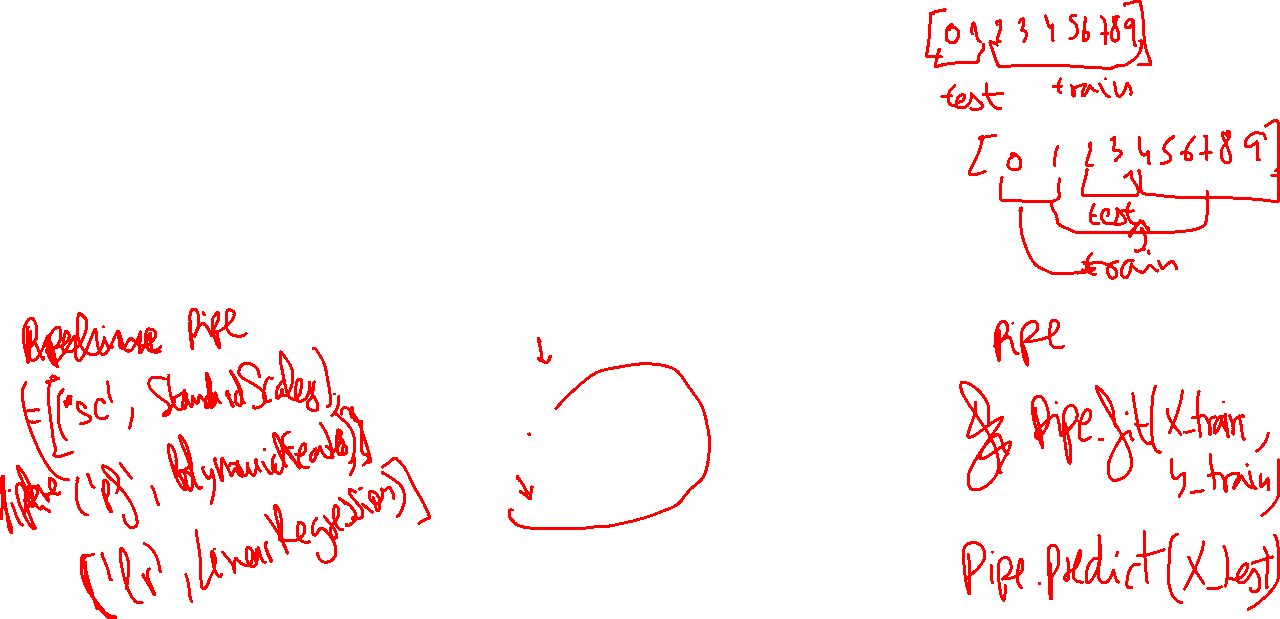 [0 1 2 3 4 5 6 7 8 9]
test train
[0 1 2 3 4 5 6 7 8 9]
test
train
Pipe
= [('sc', StandardScaler),
('pf', PolynomialFeatures)]
('lr', LinearRegression)]
Pipe
Pipe.fit(X_train,
y_train)
Pipe.predict(X_test)